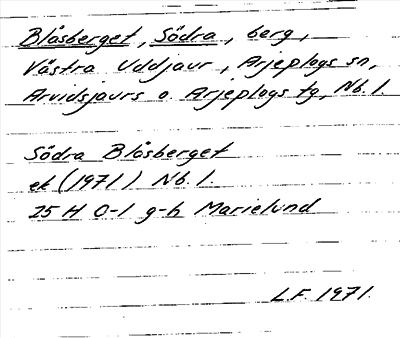 Blåsberget, Södra, berg,
Västra Uddjaur, Arjeplogs sn,
Arvidsjaurs o. Arjeplogs tg, Nb. l.
Södra Blåsberget
ek (1971) Nb. l.
25 H 0-1 g-h Marielund
L.F. 1971.